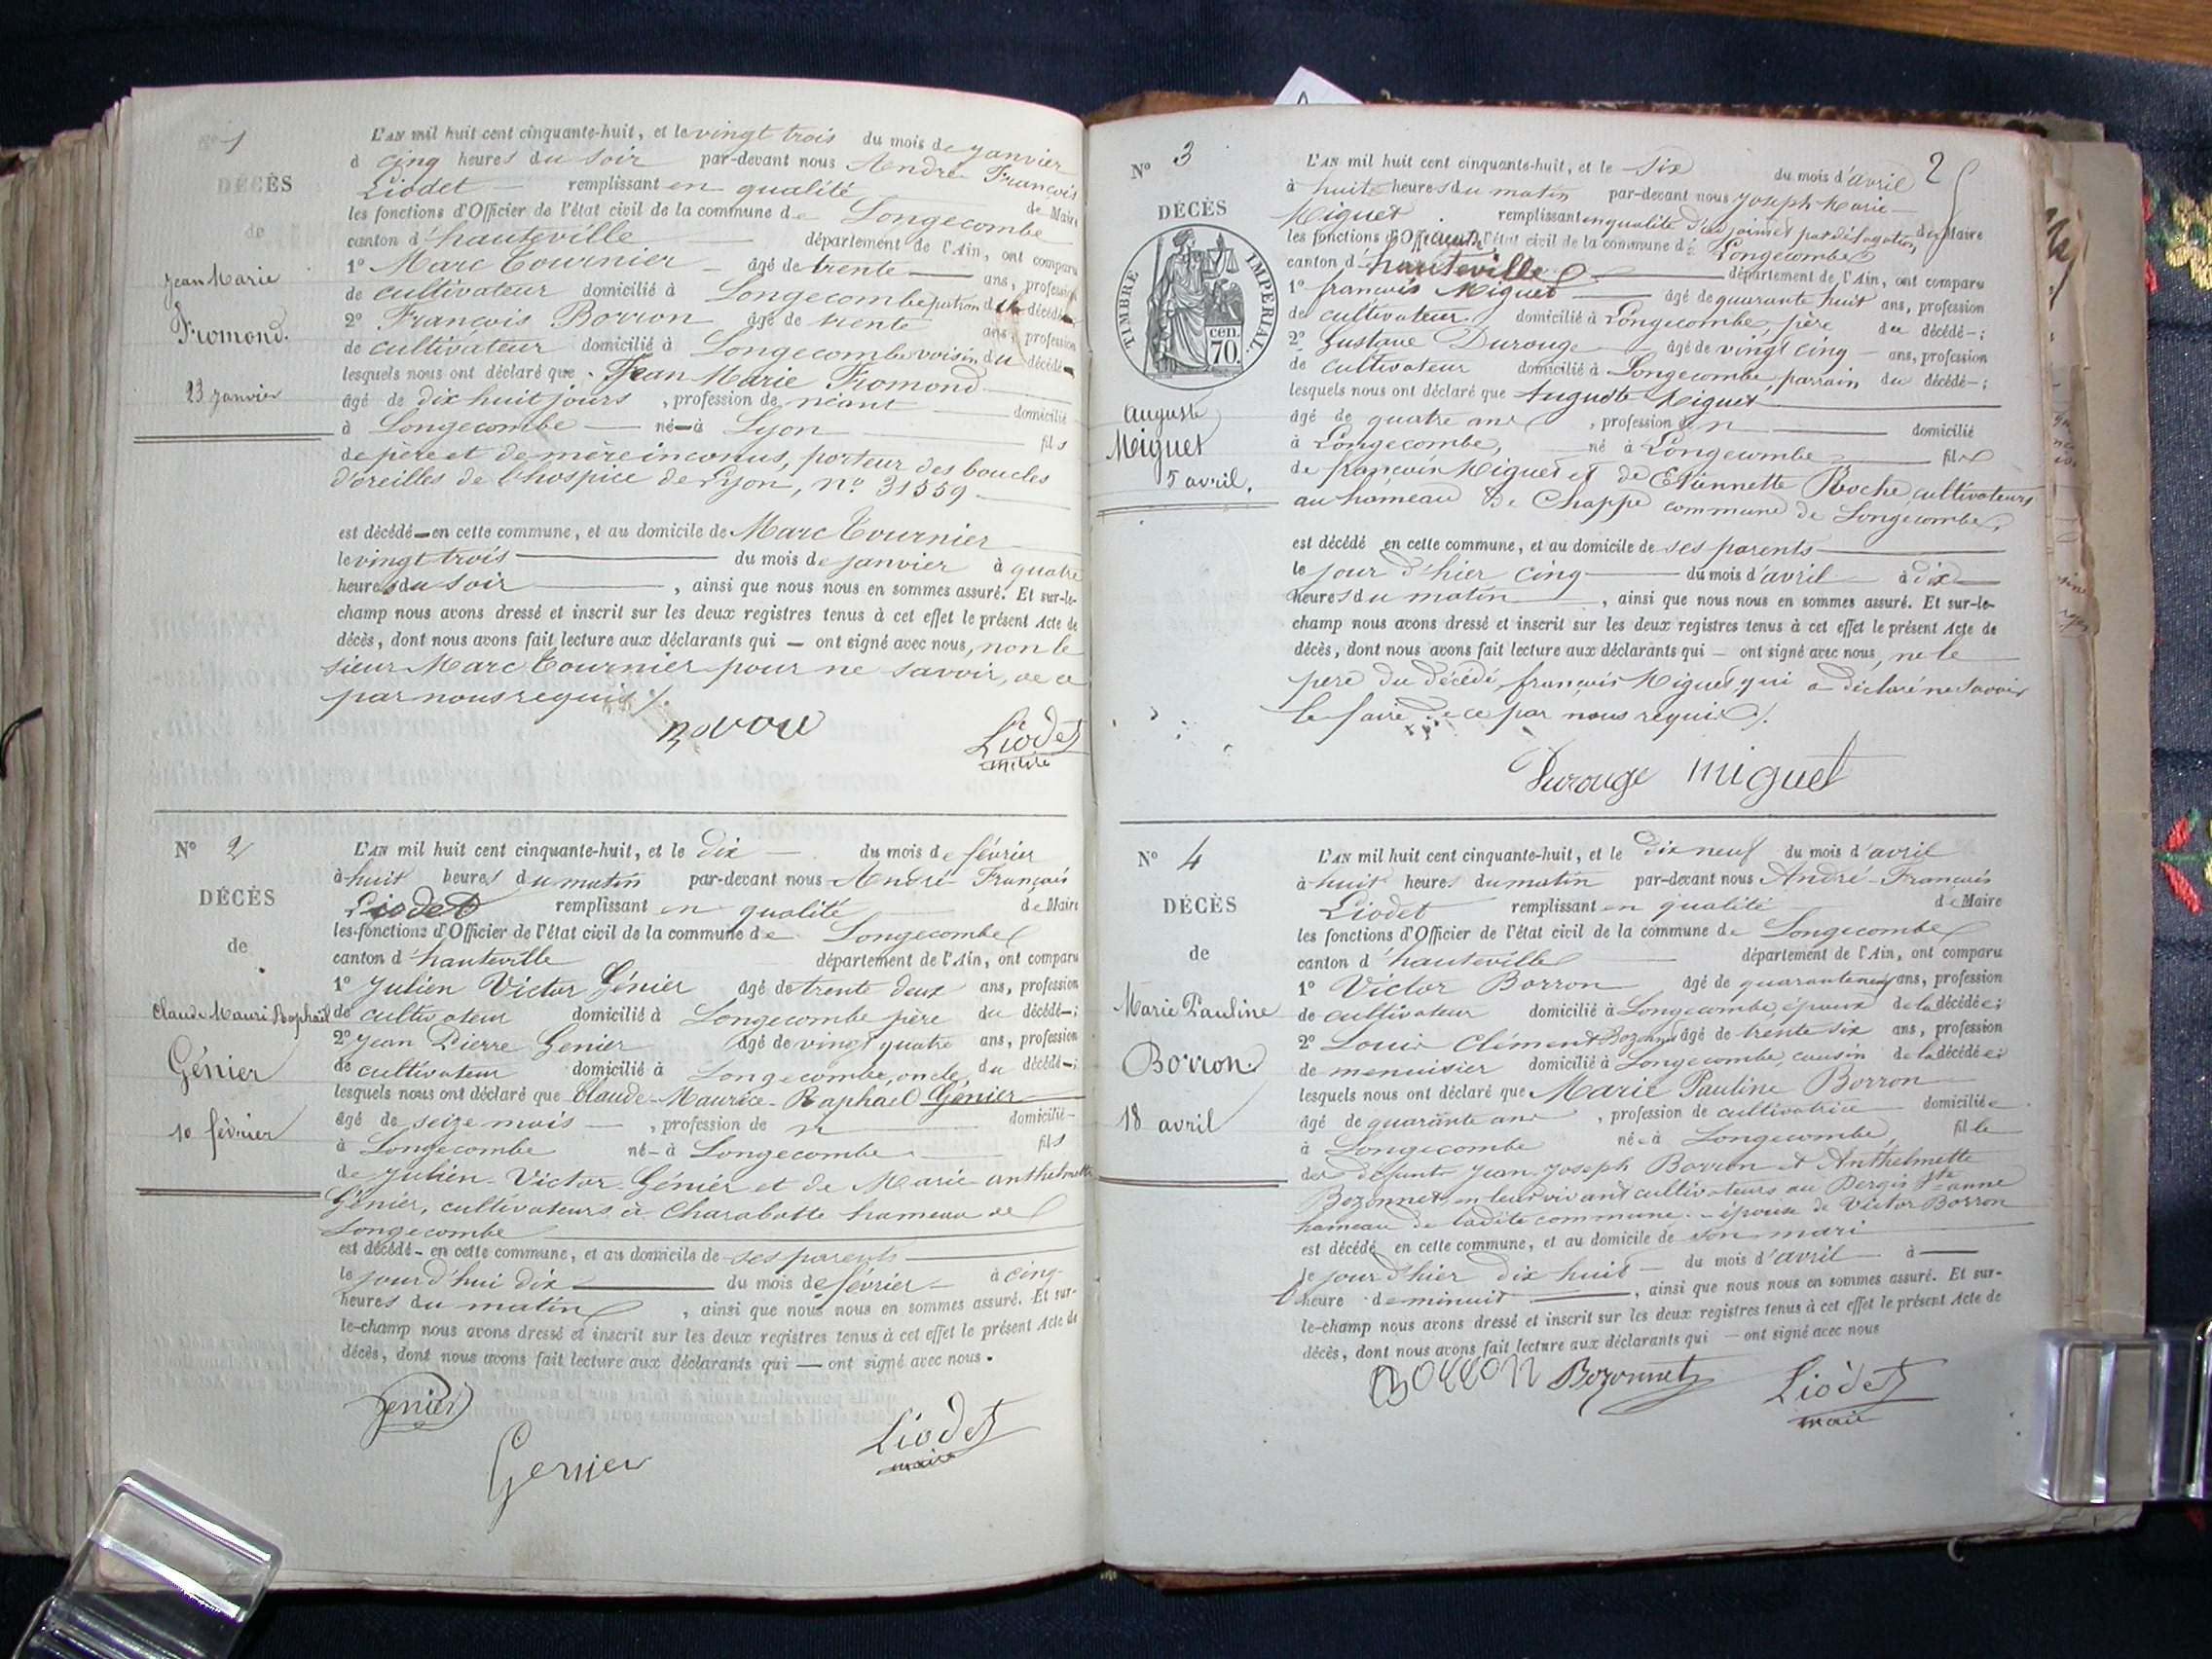 N° 1
DÉCÈS
de
Jean Marie
Fromond.
23 janvier
L'AN mil huit cent cinquante-huit, et le vingt trois du mois de janvier
à cinq heures du soir par-devant nous André François
Liodet remplissant en qualité de Maire
les fonctions d'Officier de l'état civil de la commune de Longecombe
canton d'hauteville département de l'Ain, ont comparu
1° Marc Tournier âgé de trente ans, profession
de cultivateur domicilié à Longecombe patron du décédé ;
2° François Borron âgé de trente ans, profession
de cultivateur domicilié à Longecombe voisin du décédé
lesquels nous ont déclaré que Jean Marie Fromond
âgé de dix huit jours, profession de néant domicilié
à Longecombe né à Lyon fils
de père et de mère inconus, porteur des boucles
d'oreilles de l'hospice de Lyon, n° 31559
est décédé en cette commune, et au domicile de Marc Tournier
le vingt trois du mois de janvier à quatre
heures du soir, ainsi que nous nous en sommes assuré. Et sur-le-
champ nous avons dressé et inscrit sur les deux registres tenus à cet effet le présent Acte de
décès, dont nous avons fait lecture aux déclarants qui — ont signé avec nous, non le
sieur Marc Tournier pour ne savoir, de ce
par nous requis ./.
Liodet
maire
N° 2
DÉCÈS
de
Claude Mauri Raphaël
Génier
10 février
L'AN mil huit cent cinquante-huit, et le dix du mois de février
à huit heures du matin par-devant nous André François
Liodet remplissant en qualité de Maire
les fonctions d'Officier de l'état civil de la commune de Longecombe
canton d'hauteville département de l'Ain, ont comparu
1° Julien Victor Génier âgé de trente deux ans, profession
de cultivateur domicilié à Longecombe père du décédé ;
2° Jean Pierre Genier âgé de vingt quatre ans, profession
de cultivateur domicilié à Longecombe, oncle du décédé ;
lesquels nous ont déclaré que Claude-Maurice-Raphael Genier
âgé de seize mois, profession de n domicilié
à Longecombe né à Longecombe fils
de Julien-Victor Génier et de Marie anthelmette
Génier, cultivateurs à Charabotte hameau de
Longecombe
est décédé en cette commune, et au domicile de ses parents
le jourd'hui dix du mois de février à cinq
heures du matin, ainsi que nous nous en sommes assuré. Et sur-
le-champ nous avons dressé et inscrit sur les deux registres tenus à cet effet le présent Acte de
décès, dont nous avons fait lecture aux déclarants qui — ont signé avec nous.
Genier
Genier
Liodet
maire
2
N° 3
DÉCÈS
TIMBRE IMPERIAL
cen.
70.
Auguste
Miguet
5 avril.
L'AN mil huit cent cinquante-huit, et le six du mois d'avril
à huit heures du matin par-devant nous Joseph Marie
Miguet remplissant en qualité d'adjoint par délégation de Maire
les fonctions d'Officier de l'état civil de la commune de Longecombe
canton d'hauteville département de l'Ain, ont comparu
1° françois Miguet âgé de quarante huit ans, profession
de cultivateur domicilié à Longecombe, père du décédé ;
2° Gustave Durouge âgé de vingt cinq ans, profession
de cultivateur domicilié à Longecombe, parrain du décédé ;
lesquels nous ont déclaré que Auguste Miguet
âgé de quatre ans, profession de n domicilié
à Longecombe, né à Longecombe fils
de françois Miguet et de Etiennette Roche cultivateurs
au hameau de Chappe commune de Longecombe,
est décédé en cette commune, et au domicile de ses parents
le jour d'hier cinq du mois d'avril à dix
heures du matin, ainsi que nous nous en sommes assuré. Et sur-le-
champ nous avons dressé et inscrit sur les deux registres tenus à cet effet le présent Acte de
décès, dont nous avons fait lecture aux déclarants qui — ont signé avec nous, ne le
père du décédé, françois Miguet, qui a déclaré ne savoir
le faire de ce par nous requis ./.
Durouge Miguet
N° 4
DÉCÈS
de
Marie Pauline
Borron.
18 avril
L'AN mil huit cent cinquante-huit, et le dix neuf du mois d'avril
à huit heures du matin par-devant nous André-François
Liodet remplissant en qualité de Maire
les fonctions d'Officier de l'état civil de la commune de Longecombe
canton d'hauteville département de l'Ain, ont comparu
1° Victor Borron âgé de quarante neuf ans, profession
de cultivateur domicilié à Longecombe, époux de la décédée ;
2° Louis Clément Bozonnet âgé de trente six ans, profession
de menuisier domicilié à Longecombe, cousin de la décédée ;
lesquels nous ont déclaré que Marie Pauline Borron
âgé de quarante ans, profession de cultivatrice domiciliée
à Longecombe née à Longecombe, fille
des défunts Jean-Joseph Borron et Anthelmette
Bozonnet, en leur vivant cultivateurs au Bergis Ste anne
hameau de ladite commune. - épouse de Victor Borron
est décédé en cette commune, et au domicile de son mari
le jour d'hier dix huit du mois d'avril à
heure de minuit, ainsi que nous nous en sommes assuré. Et sur-
le-champ nous avons dressé et inscrit sur les deux registres tenus à cet effet le présent Acte de
décès, dont nous avons fait lecture aux déclarants qui — ont signé avec nous
Borron Bozonnet Liodet
maire